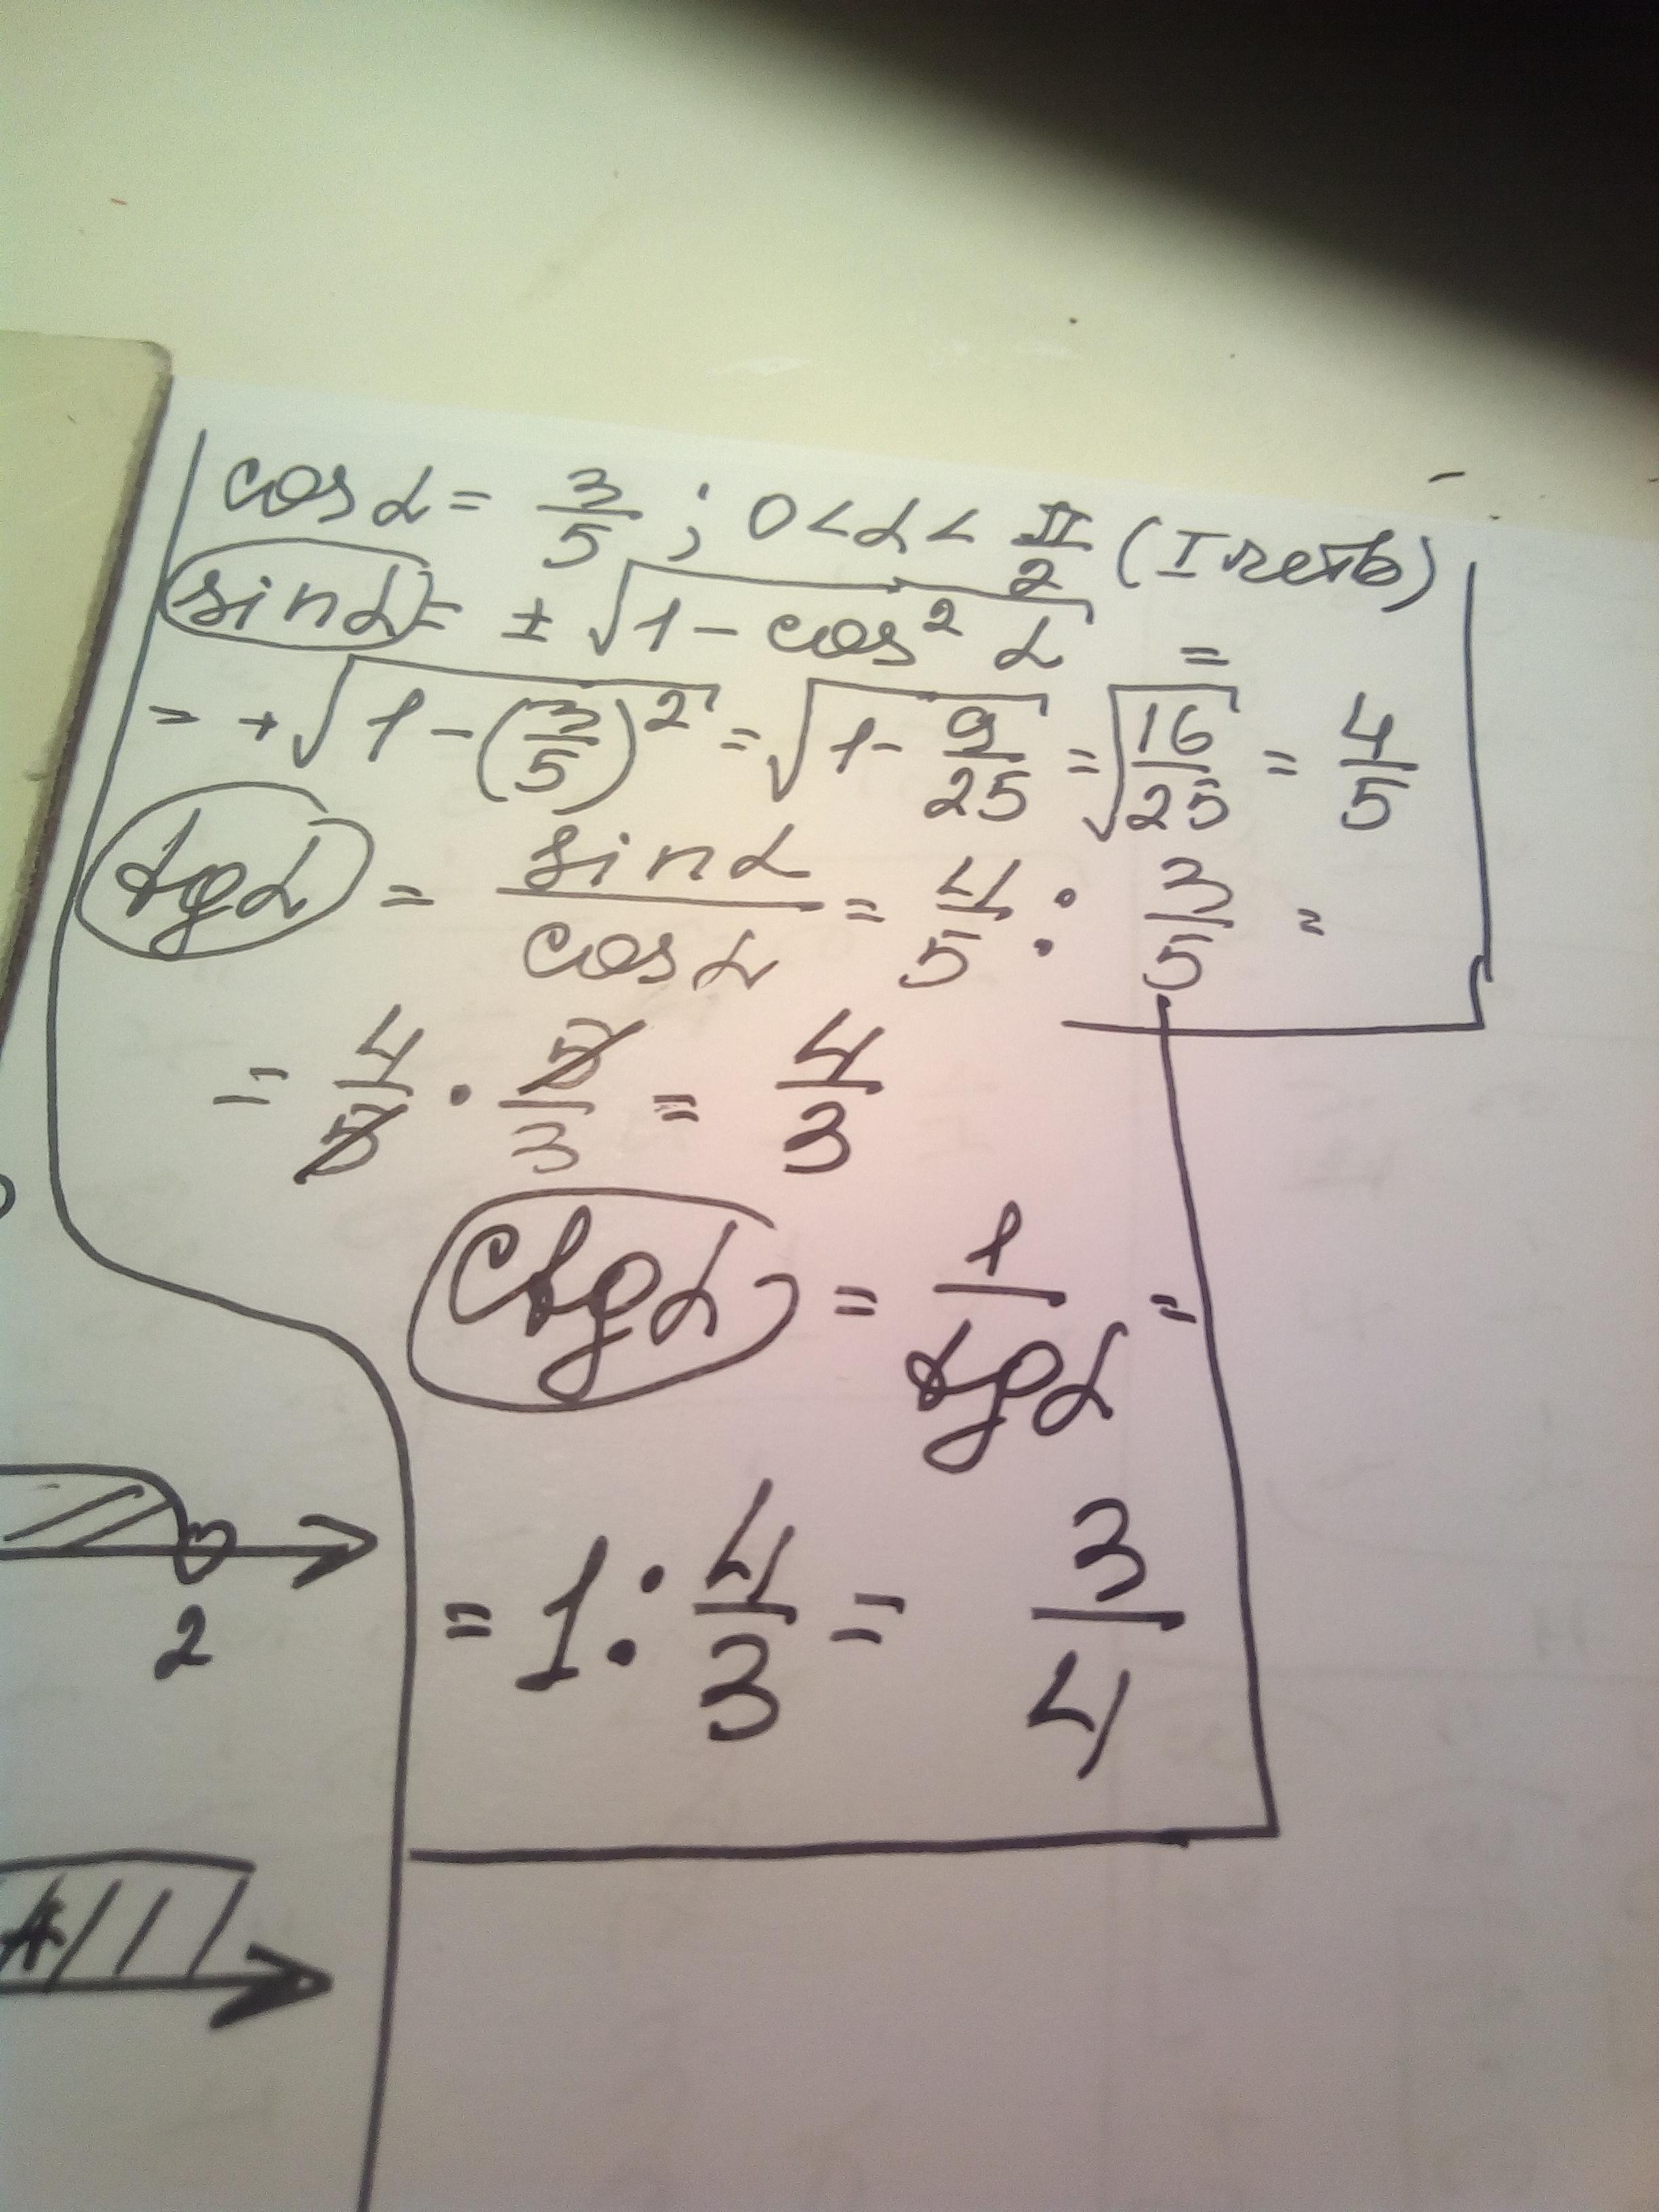 cos α = 3/5 ; 0 < α < π/2 (I четв)
sin α = ± √(1 - cos² α) =
= + √(1 - (3/5)²) = √(1 - 9/25) = √(16/25) = 4/5
tg α = sin α / cos α = 4/5 : 3/5 =
= 4/5 · 5/3 = 4/3
ctg α = 1 / tg α =
= 1 : 4/3 = 3/4
2